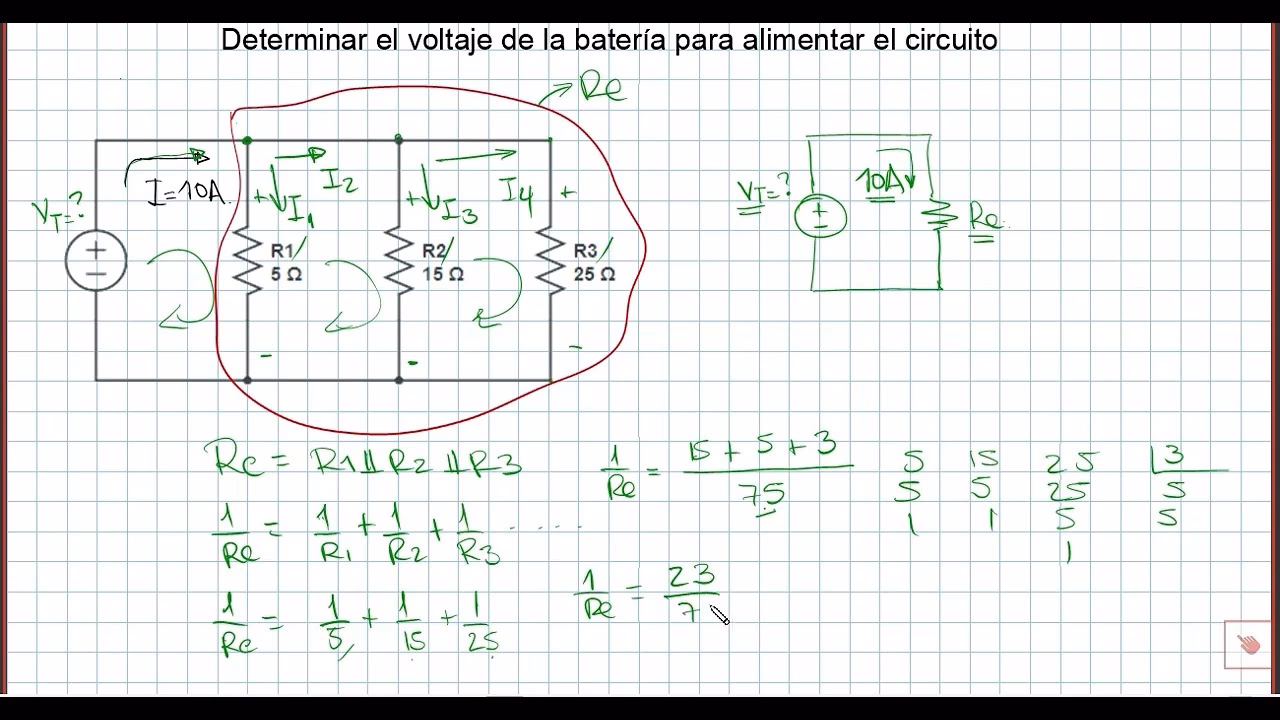 Determinar el voltaje de la batería para alimentar el circuito
Re
I=10A
VT=?
+ I1
I2
+ I3
I4
+
R1
5 Ω
R2
15 Ω
R3
25 Ω
+
-
-
-
-
VT=?
10A
Re
+
-
Re = R1 || R2 || R3
1/Re = 1/R1 + 1/R2 + 1/R3 .....
1/Re = 1/5 + 1/15 + 1/25
1/Re = 15 + 5 + 3 / 75
1/Re = 23/7
5 15 25 3
5 5 25 5
1 1 5 5
1